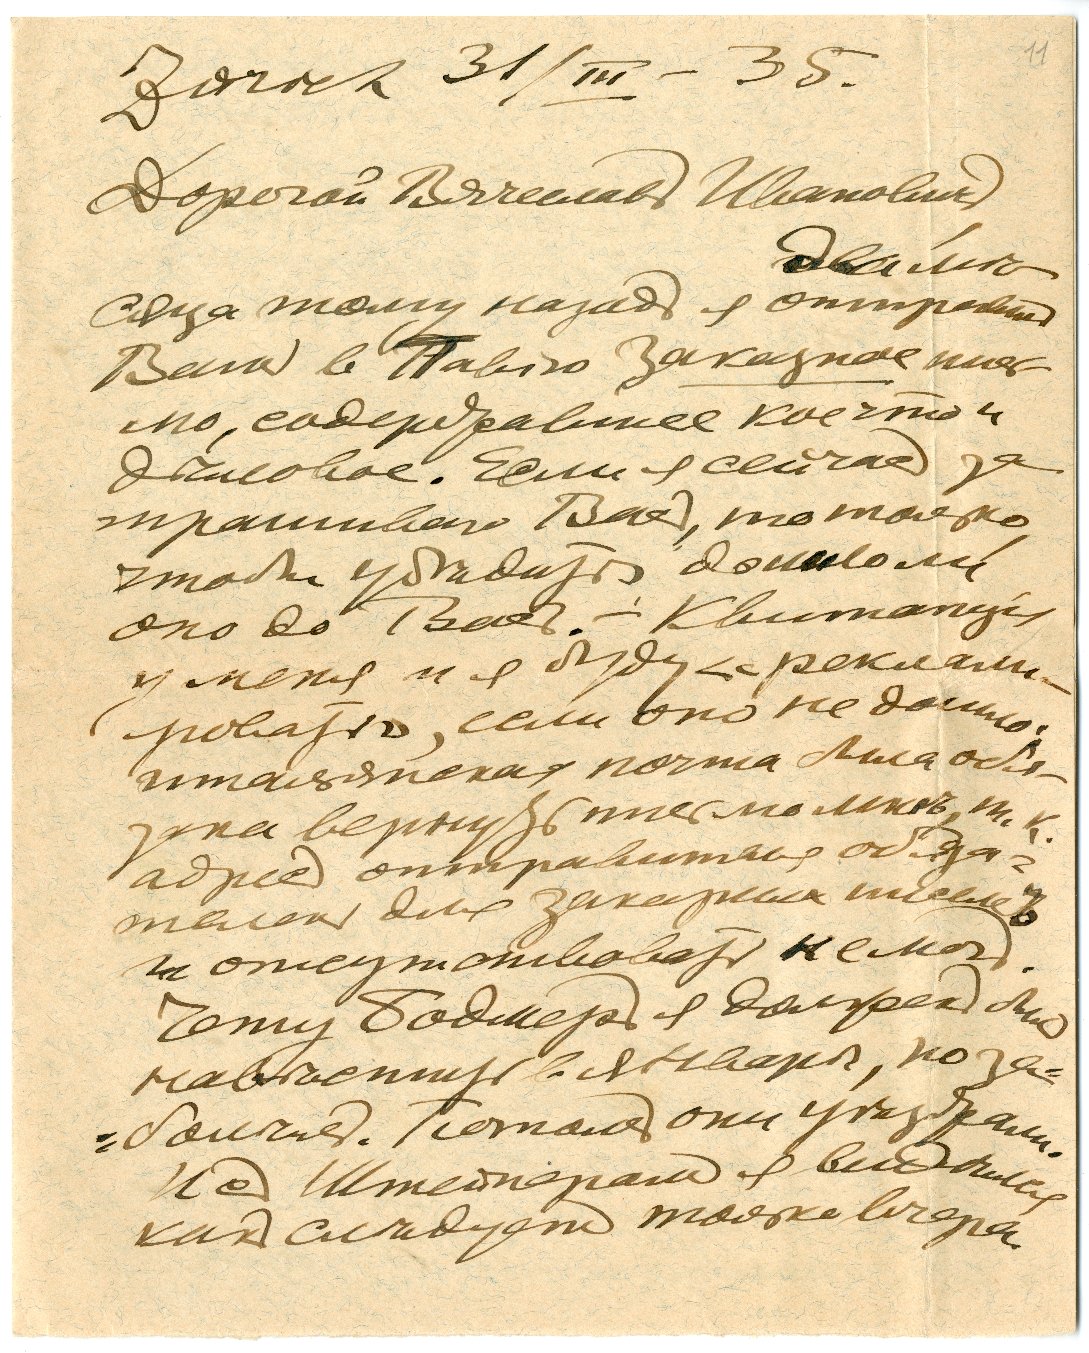 11
Zürich 31/III – 35.
Дорогой Вячеславъ Ивановичъ
два мѣ-
сяца тому назадъ я отправилъ
Вамъ в Павію заказное пись-
мо, содержавшее кое что и
дѣловое. Если я сейчасъ за-
прашиваю Васъ, то только
чтобы убѣдиться дошло ли
оно до Васъ. – Квитанція
у меня и я буду реклами-
ровать, если оно не дошло:
итальянская почта была обя-
зана вернуть письмо мнѣ, т. к.
адресъ отправителя обяза-
теленъ для заказныхъ писемъ
и отсутствовать не могъ.
Чету Бодмеръ я долженъ былъ
навѣстить в январѣ, но за-
=болѣлъ. Потомъ они уѣзжали.
И съ Штейнеромъ я видѣлся
какъ слѣдуетъ только вчера.